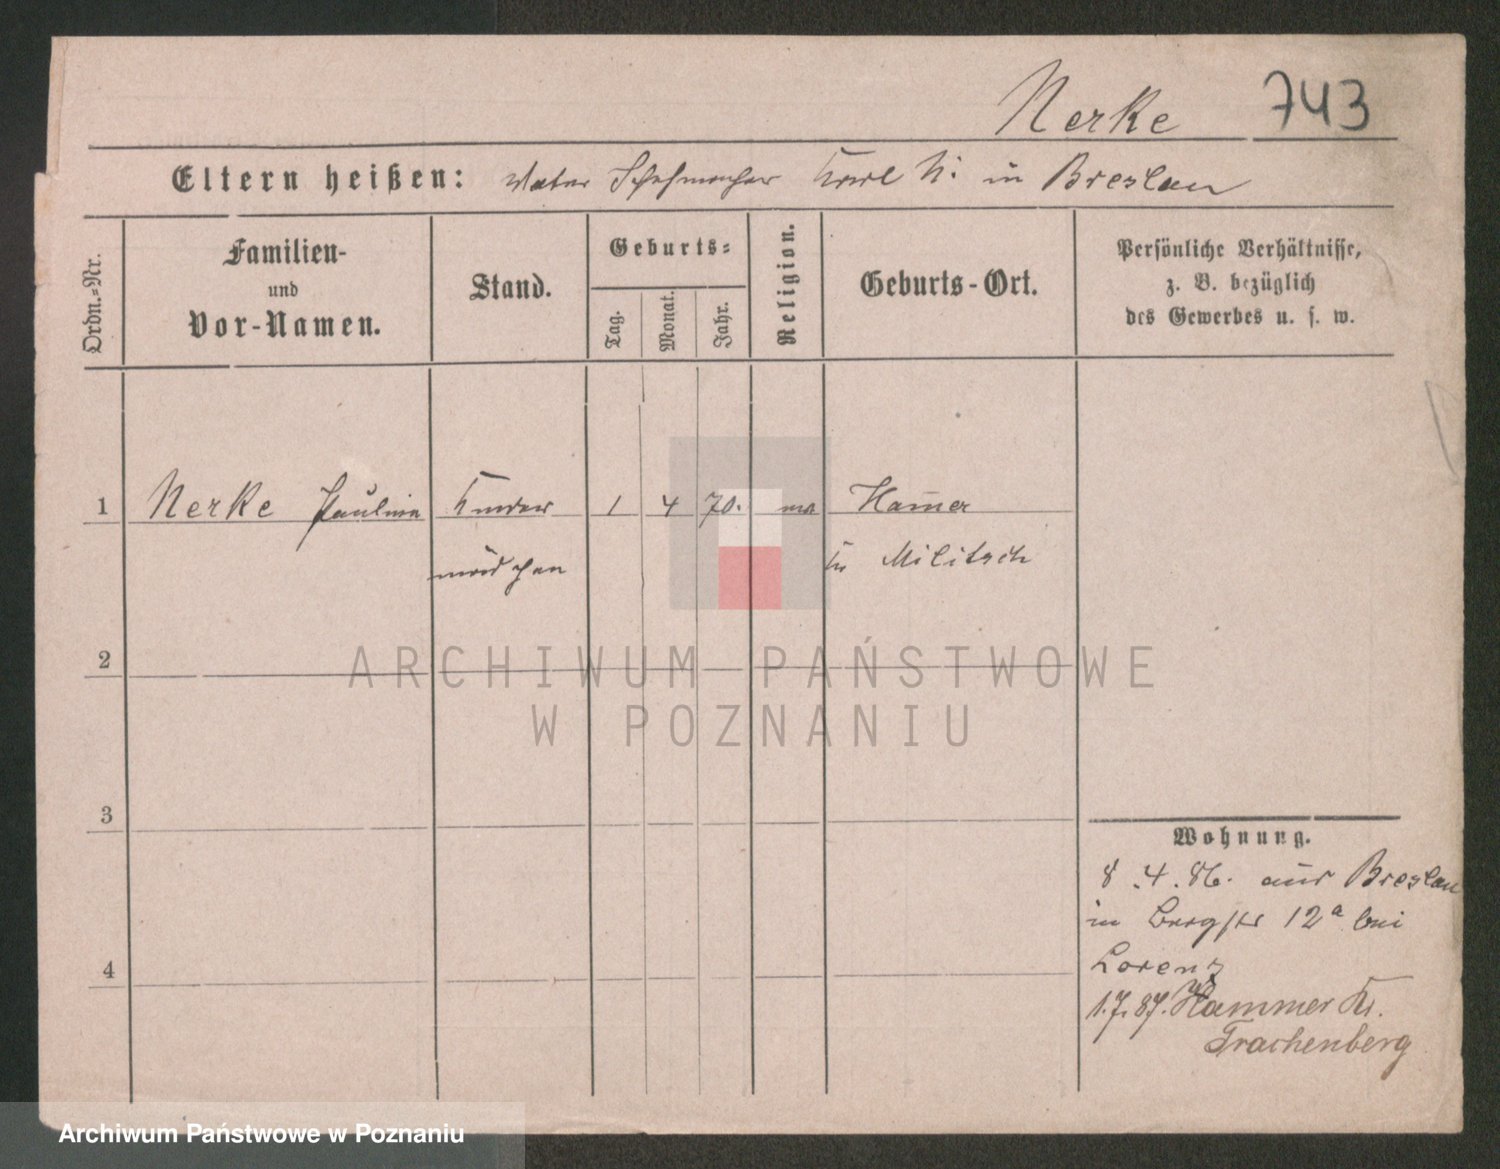 Nerke 743
Eltern heißen: Vater Schuhmacher Karl N. in Breslau
Ordn.-Nr.
Familien-
und
Vor-Namen.
Stand.
Geburts-
Tag.
Monat.
Jahr.
Religion.
Geburts-Ort.
Persönliche Verhältnisse,
z. B. bezüglich
des Gewerbes u. s. w.
1 Nerke Pauline Kinder 1 4 70. Ham̄er
mädchen Militsch
2
3
4
Wohnung.
8.4.86. aus Breslau
in Bergstr 12a bei
Lorenz
1.7.87. Hammer Kr.
Trachenberg
ARCHIWUM PAŃSTWOWE
W POZNANIU
Archiwum Państwowe w Poznaniu